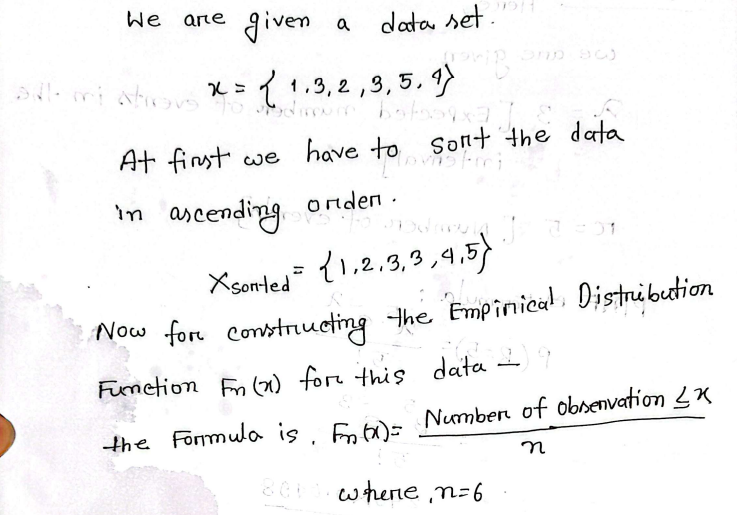 We are given a data set.
x = { 1,3,2,3,5,4}
At first we have to sort the data
in ascending order.
Xsorted = {1,2,3,3,4,5}
Now for constructing the Empirical Distribution
Function Fn(x) for this data —
the Formula is, Fn(x)= Number of observation ≤ x / n
where, n=6